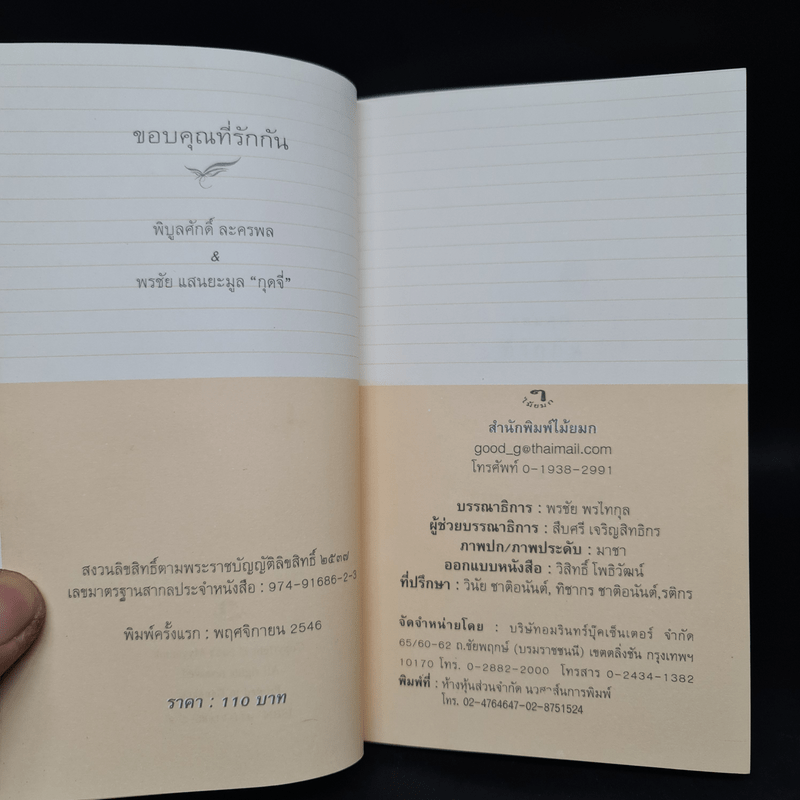 ขอบคุณที่รักกัน
พิบูลศักดิ์ ละครพล
&
พรชัย แสนยะมูล “กุดจี่”
สงวนลิขสิทธิ์ตามพระราชบัญญัติลิขสิทธิ์ ๒๕๓๗
เลขมาตรฐานสากลประจำหนังสือ : 974-91686-2-3
พิมพ์ครั้งแรก : พฤศจิกายน 2546
ราคา : 110 บาท
ๆ
ไม้ยมก
สำนักพิมพ์ไม้ยมก
good_g@thaimail.com
โทรศัพท์ 0-1938-2991
บรรณาธิการ : พรชัย พรไทกุล
ผู้ช่วยบรรณาธิการ : สืบศรี เจริญสิทธิกร
ภาพปก/ภาพประดับ : มาชา
ออกแบบหนังสือ : วิสิทธิ์ โพธิวัฒน์
ที่ปรึกษา : วินัย ชาติอนันต์, ทิชากร ชาติอนันต์,รติกร
จัดจำหน่ายโดย : บริษัทอมรินทร์บุ๊คเซ็นเตอร์ จำกัด
65/60-62 ถ.ชัยพฤกษ์ (บรมราชชนนี) เขตตลิ่งชัน กรุงเทพฯ
10170 โทร. 0-2882-2000 โทรสาร 0-2434-1382
พิมพ์ที่ : ห้างหุ้นส่วนจำกัด นวสาส์นการพิมพ์
โทร. 02-4764647-02-8751524